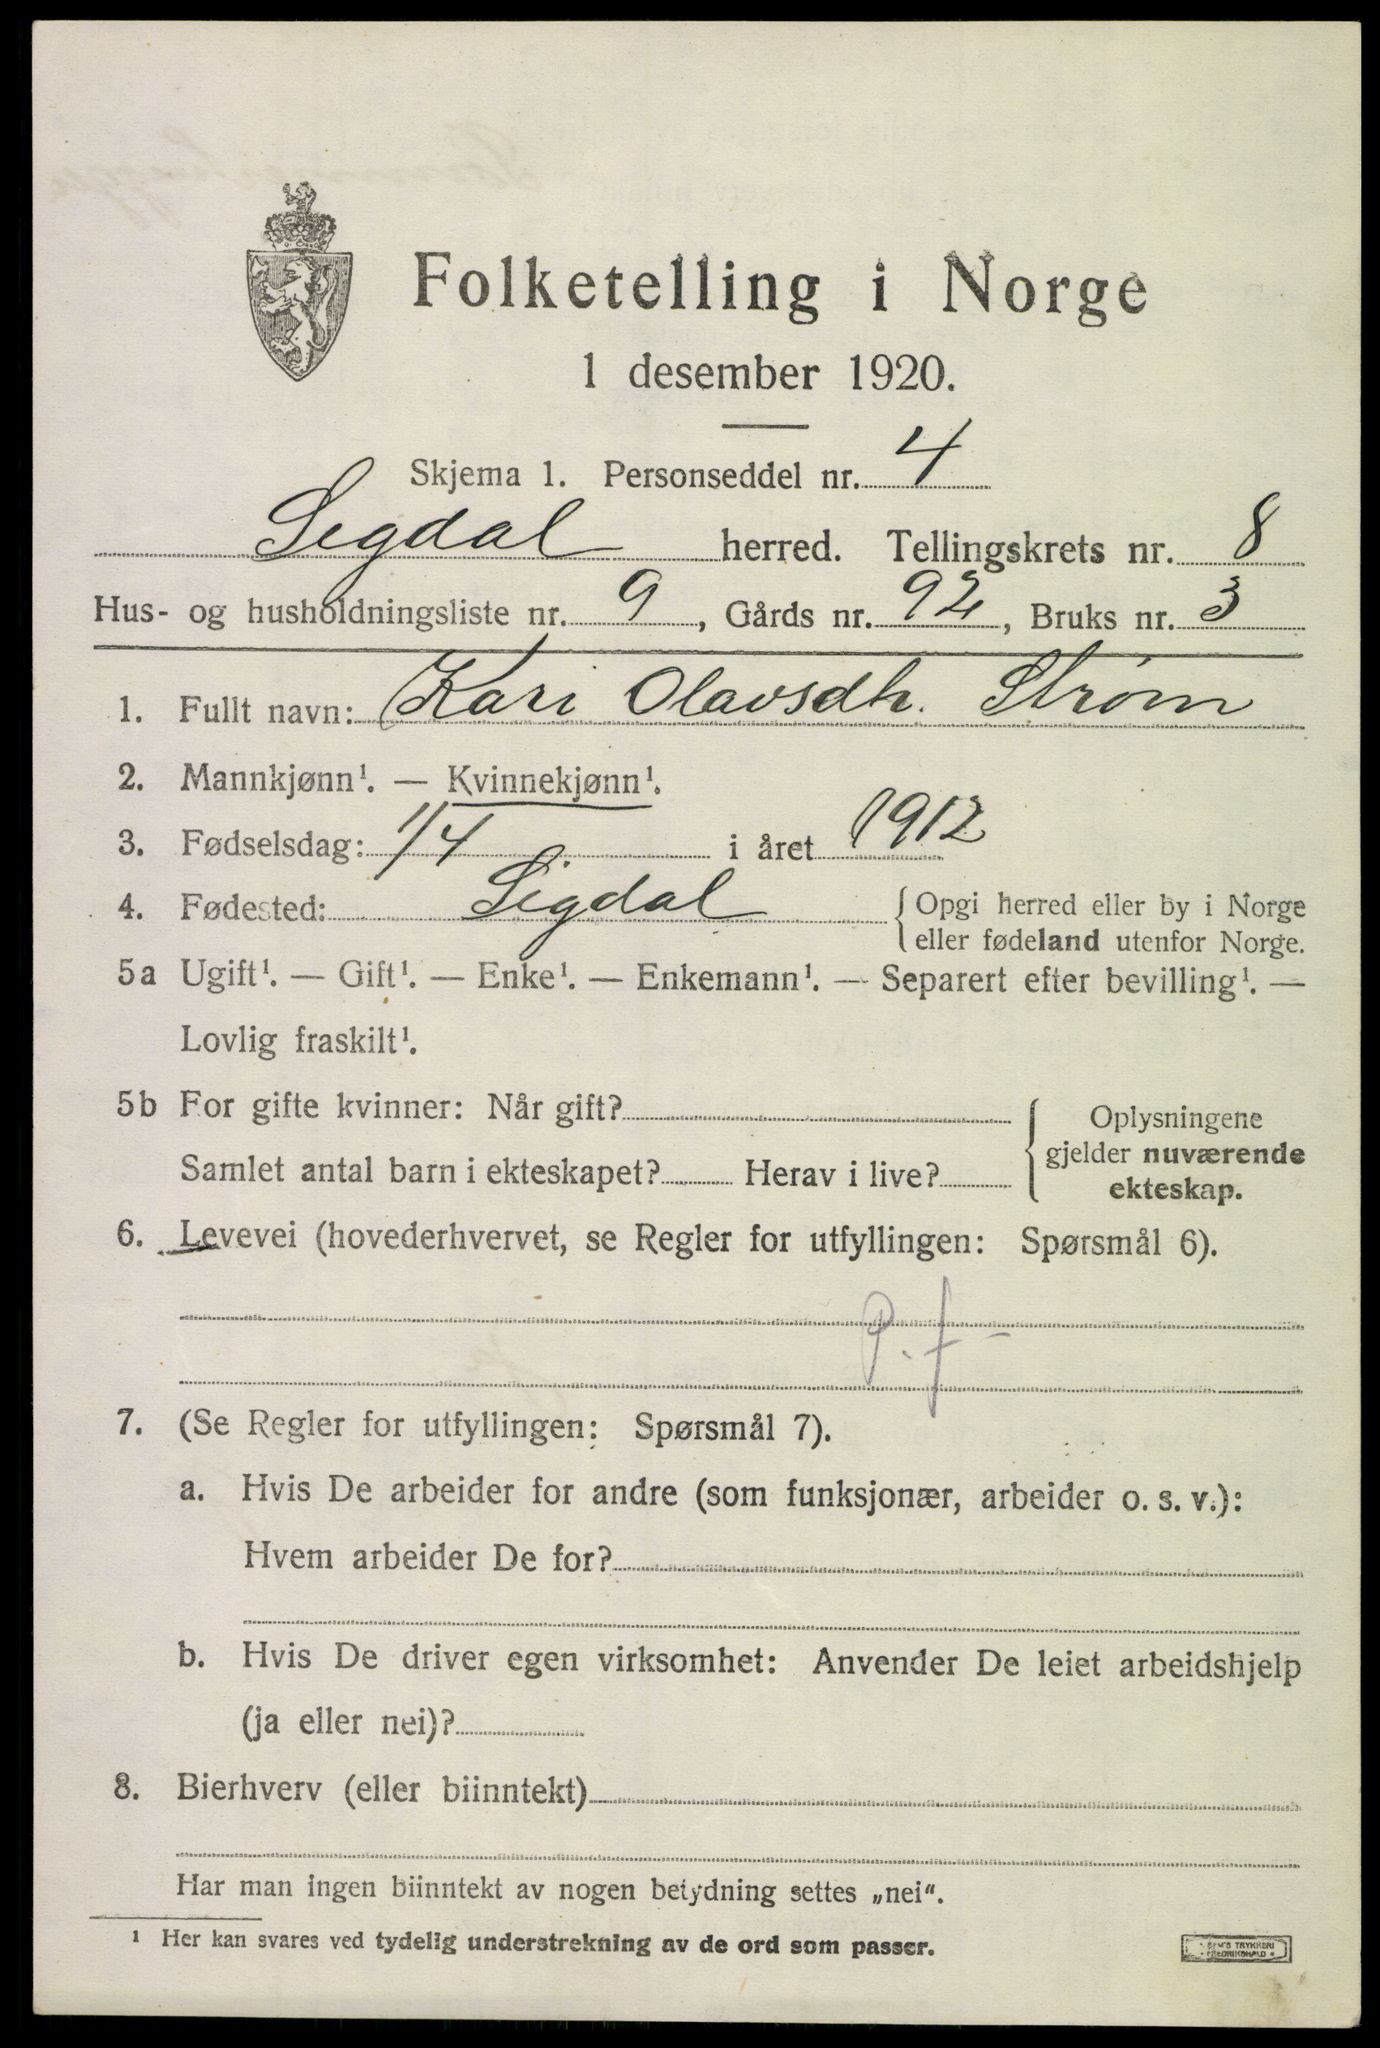 Folketelling i Norge
1 desember 1920.
Skjema 1. Personseddel nr. 4
Sigdal herred. Tellingskrets nr. 8
Hus- og husholdningsliste nr. 9, Gårds nr. 92, Bruks nr. 3
1. Fullt navn: Kari Olavsdh. Strøm
2. Mannkjønn¹. — Kvinnekjønn¹.
3. Fødselsdag: 1/4 i året 1912
4. Fødested: Sigdal { Opgi herred eller by i Norge
eller fødeland utenfor Norge.
5a Ugift¹. — Gift¹. — Enke¹. — Enkemann¹. — Separert efter bevilling¹. —
Lovlig fraskilt¹.
5b For gifte kvinner: Når gift?
Samlet antal barn i ekteskapet? Herav i live?
Oplysningene
gjelder nuværende
ekteskap.
6. Levevei (hovederhvervet, se Regler for utfyllingen: Spørsmål 6).
P. f -
7. (Se Regler for utfyllingen: Spørsmål 7).
a. Hvis De arbeider for andre (som funksjonær, arbeider o. s. v.):
Hvem arbeider De for?
b. Hvis De driver egen virksomhet: Anvender De leiet arbeidshjelp
(ja eller nei)?
8. Bierhverv (eller biinntekt)
Har man ingen biinntekt av nogen betydning settes „nei".
¹ Her kan svares ved tydelig understrekning av de ord som passer.
TRYKKERI
FREDRIKSHALD